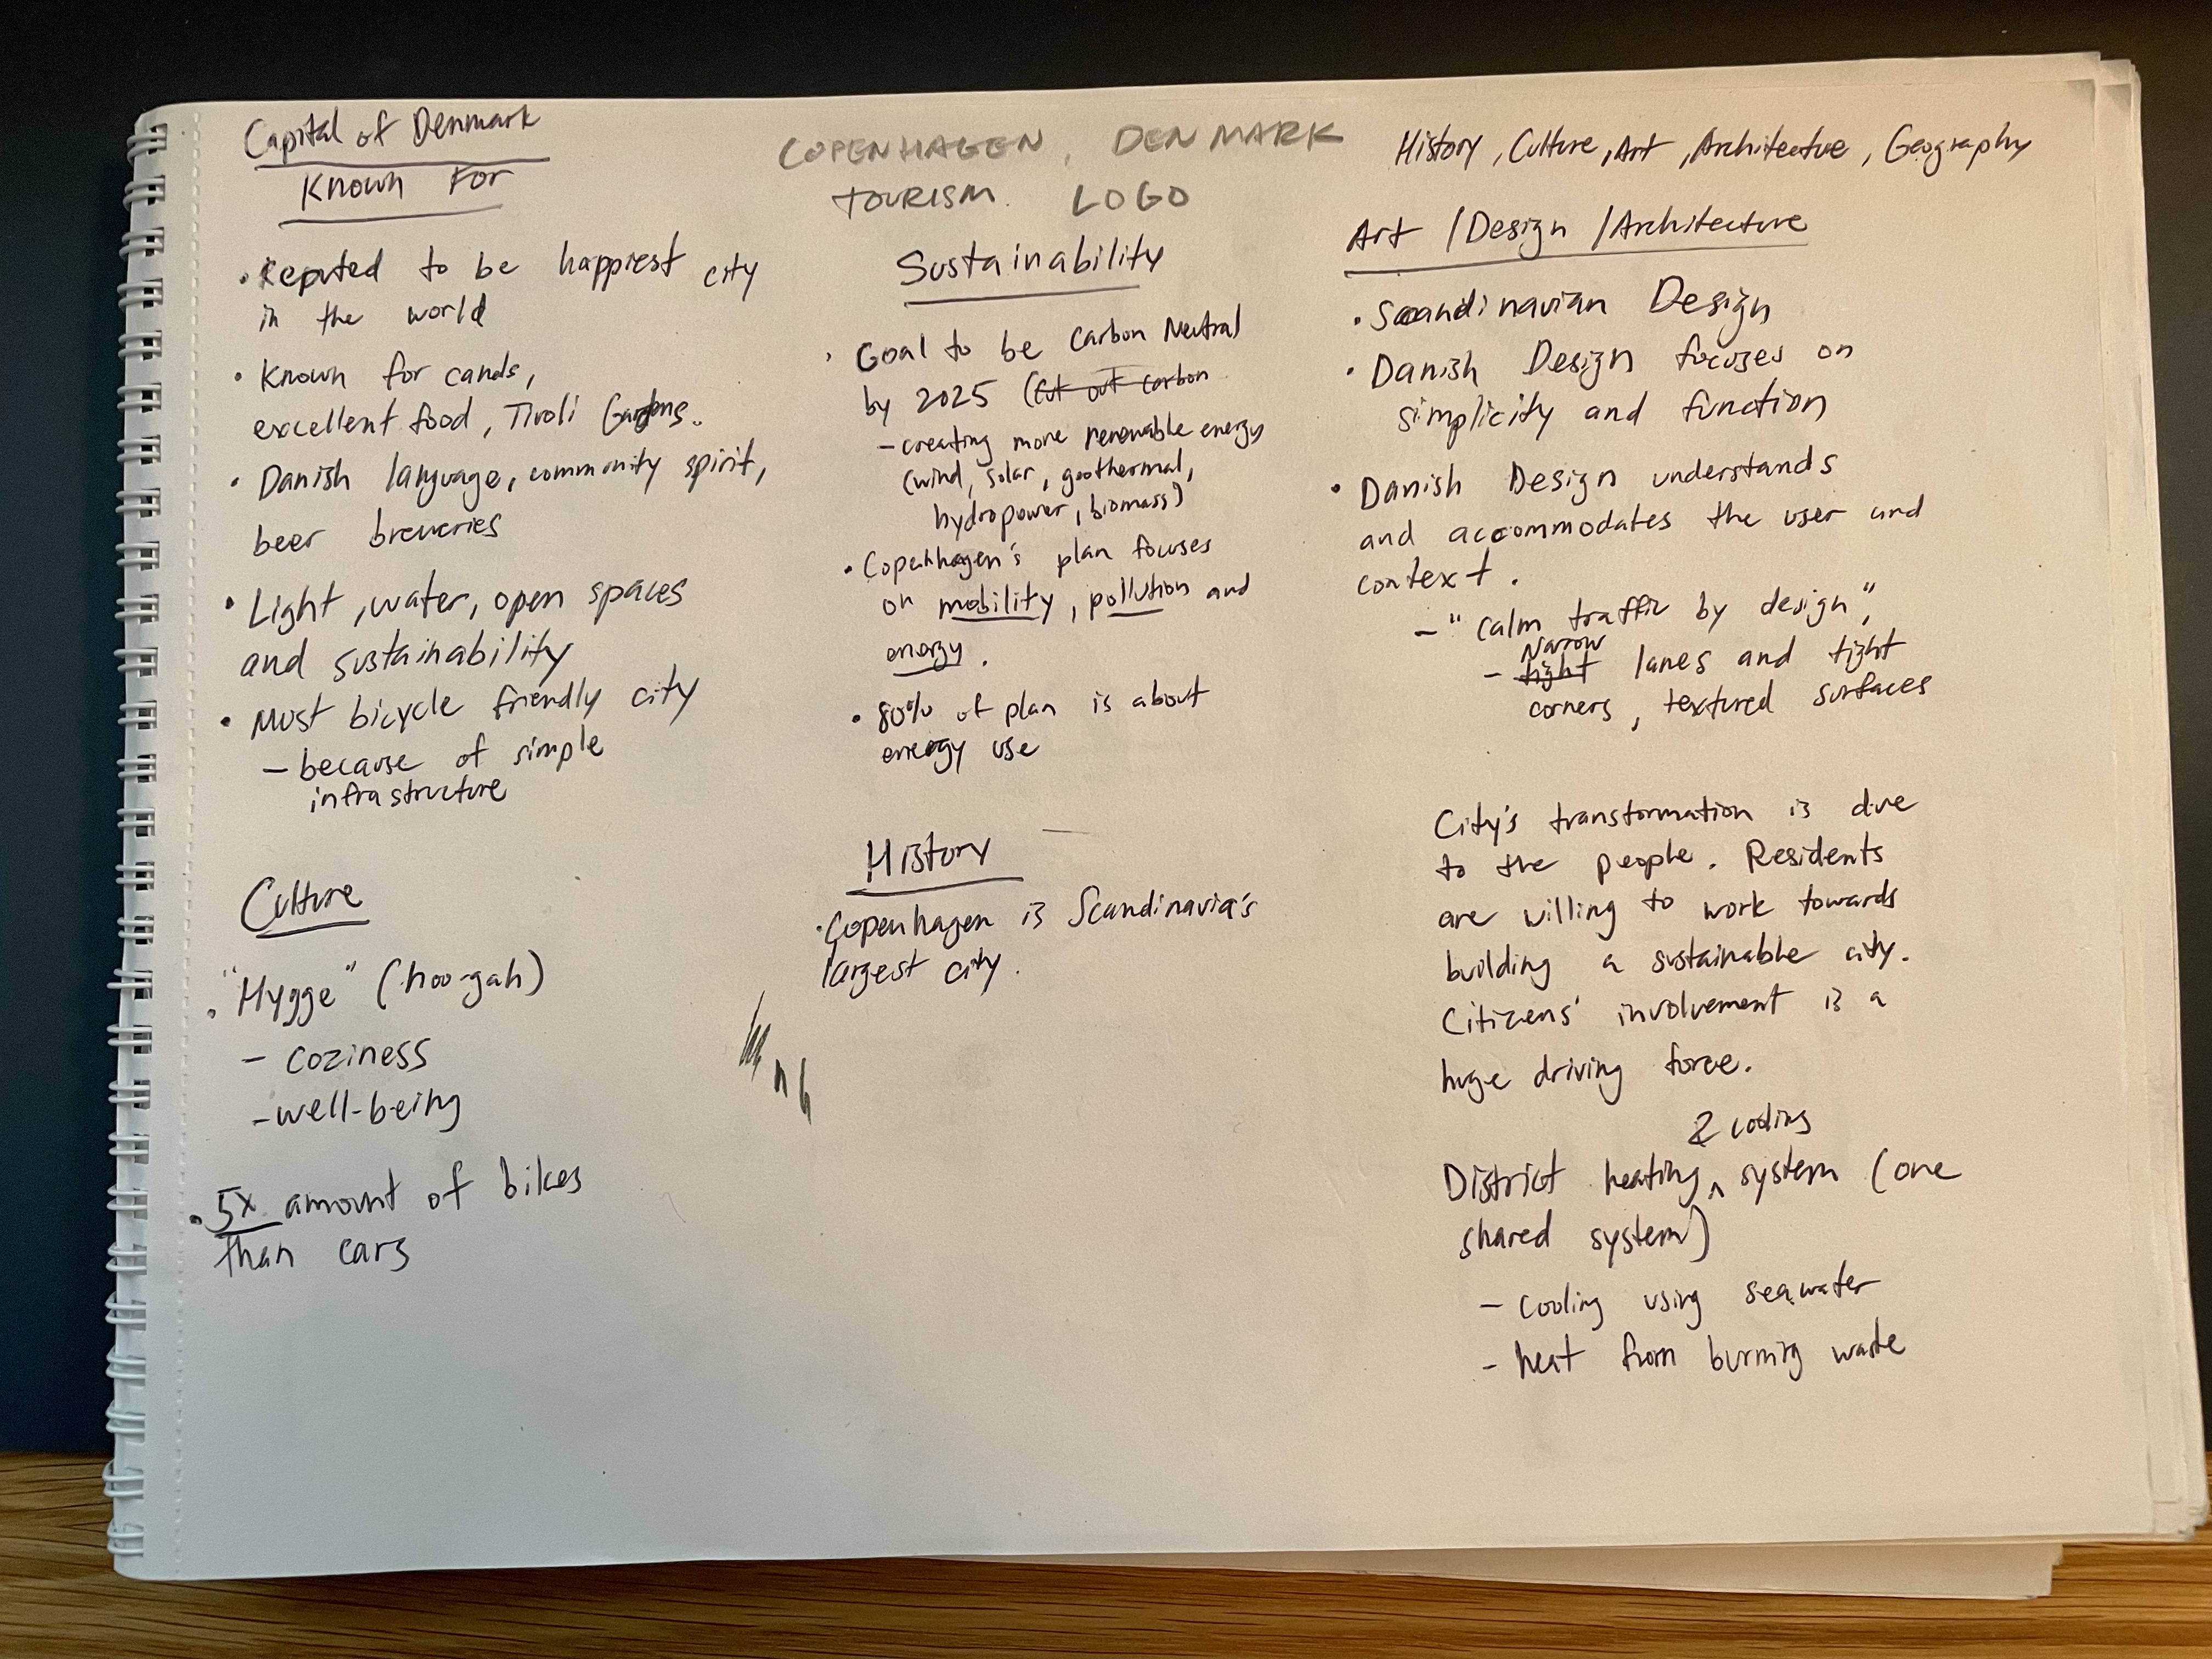 Capital of Denmark
Known For
• Reputed to be happiest city
in the world
• Known for canals,
excellent food, Tivoli Gardens.
• Danish language, community spirit,
beer breweries
• Light, water, open spaces
and sustainability
• Most bicycle friendly city
- because of simple
infrastructure
Culture
• "Hygge" (hoo-gah)
- coziness
- well-being
• 5x amount of bikes
than cars
COPENHAGEN, DENMARK
TOURISM LOGO
Sustainability
• Goal to be Carbon Neutral
by 2025 (Cut out carbon
- creating more renewable energy
(wind, solar, geothermal,
hydropower, biomass)
• Copenhagen's plan focuses
on mobility, pollution and
energy.
• 80% of plan is about
energy use
History
• Copenhagen is Scandinavia's
largest city.
History, Culture, Art, Architecture, Geography
Art / Design / Architecture
• Scandinavian Design
• Danish Design focuses on
simplicity and function
• Danish Design understands
and accommodates the user and
context.
- "calm traffic by design",
Narrow
- tight lanes and tight
corners, textured surfaces
City's transformation is due
to the people. Residents
are willing to work towards
building a sustainable city.
Citizens' involvement is a
huge driving force.
& cooling
District heating ^ system (one
shared system)
- cooling using seawater
- heat from burning waste